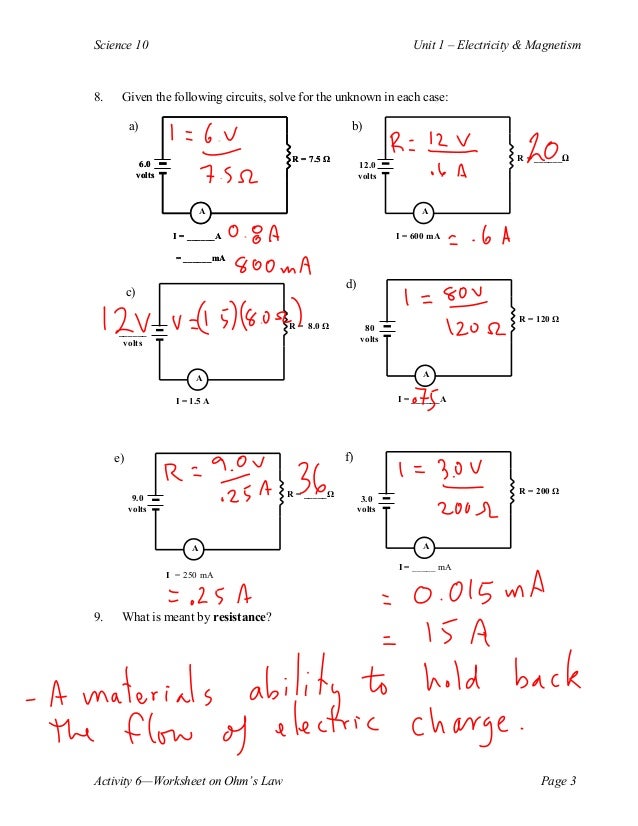 Science 10 Unit 1 – Electricity & Magnetism
8. Given the following circuits, solve for the unknown in each case:
a)
I = 6.V / 7.5Ω
6.0 volts
R = 7.5 Ω
A
I = _____A 0.8A
= _____mA 800mA
b)
R = 12 V / .6 A
12.0 volts
R 20 Ω
A
I = 600 mA = .6 A
c)
12V volts
V = (1 5)(8.0Ω)
R – 8.0 Ω
A
I = 1.5 A
d)
I = 80V / 120 Ω
80 volts
R = 120 Ω
A
I = .75 A
e)
R = 9.0V / .25 A
9.0 volts
R – 36 Ω
A
I = 250 mA
= .25 A
f)
I = 3.0V / 200 Ω
3.0 volts
R = 200 Ω
A
I = _____ mA
= 0.015 mA
= 15 A
9. What is meant by resistance?
- A materials ability to hold back
the flow of electric charge.
Activity 6—Worksheet on Ohm's Law Page 3